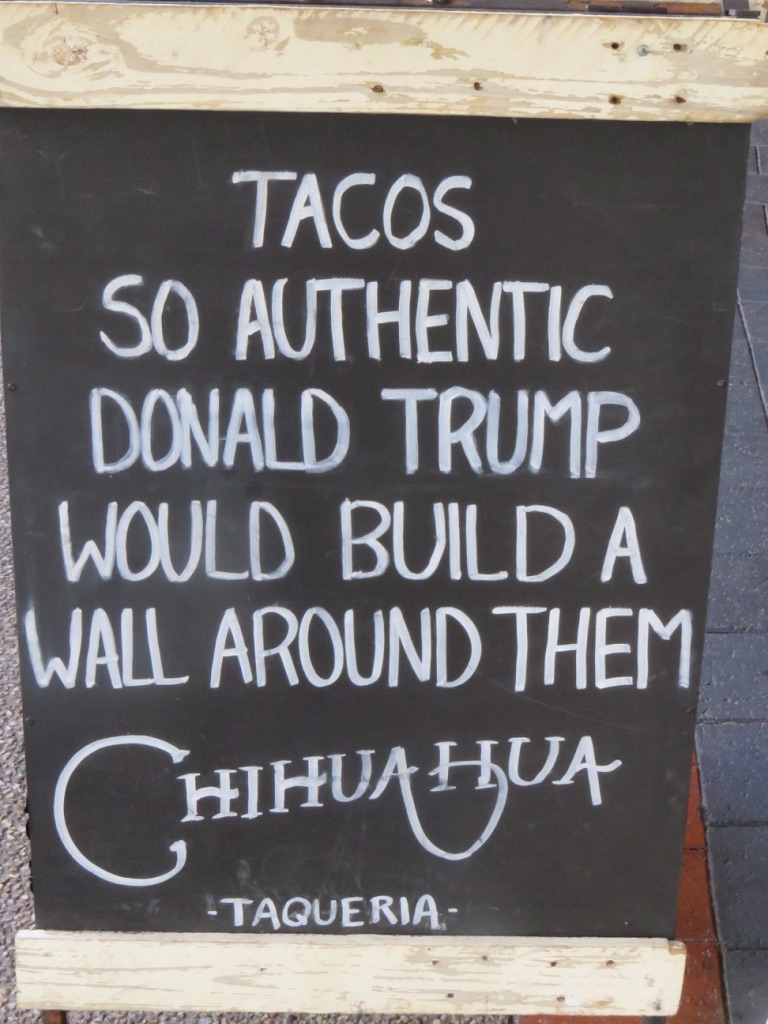 TACOS
SO AUTHENTIC
DONALD TRUMP
WOULD BUILD A
WALL AROUND THEM
CHIHUAHUA
-TAQUERIA-